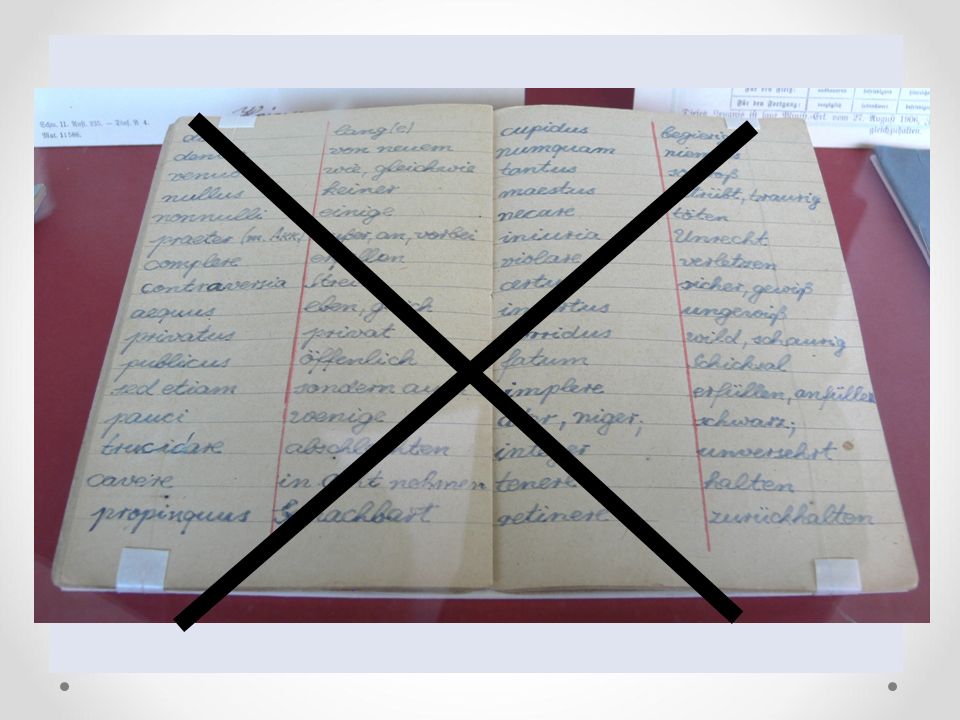 Schu. II. Nuß. 235. — Dins. A 4.
Mat. 1:586.
Für den Fleiß:
Für den Fortgang:
27. August 1906,
gleichzuhalten.
lang(e)
von neuem
wie, gleichwie
nullus keiner
nonnulli einige
praeter (m. Akk) außer, an, vorbei
complere erfüllen
contraversia
aequus eben, gleich
privatus privat
publicus öffenlich
sed etiam sondern
pauci wenige
trucidare abschlachten
cavere in Acht nehmen
propinquus benachbart
cupidus
numquam
tantus
maestus betrübt, traurig
necare töten
iniuria Unrecht
violare verletzen
certus sicher, gewiß
incertus ungewiß
horridus wild, schaurig
fatum Schicksal
implere erfüllen, anfüllen
ater, niger; schwarz;
integer unversehrt
tenere halten
retinere zurückhalten